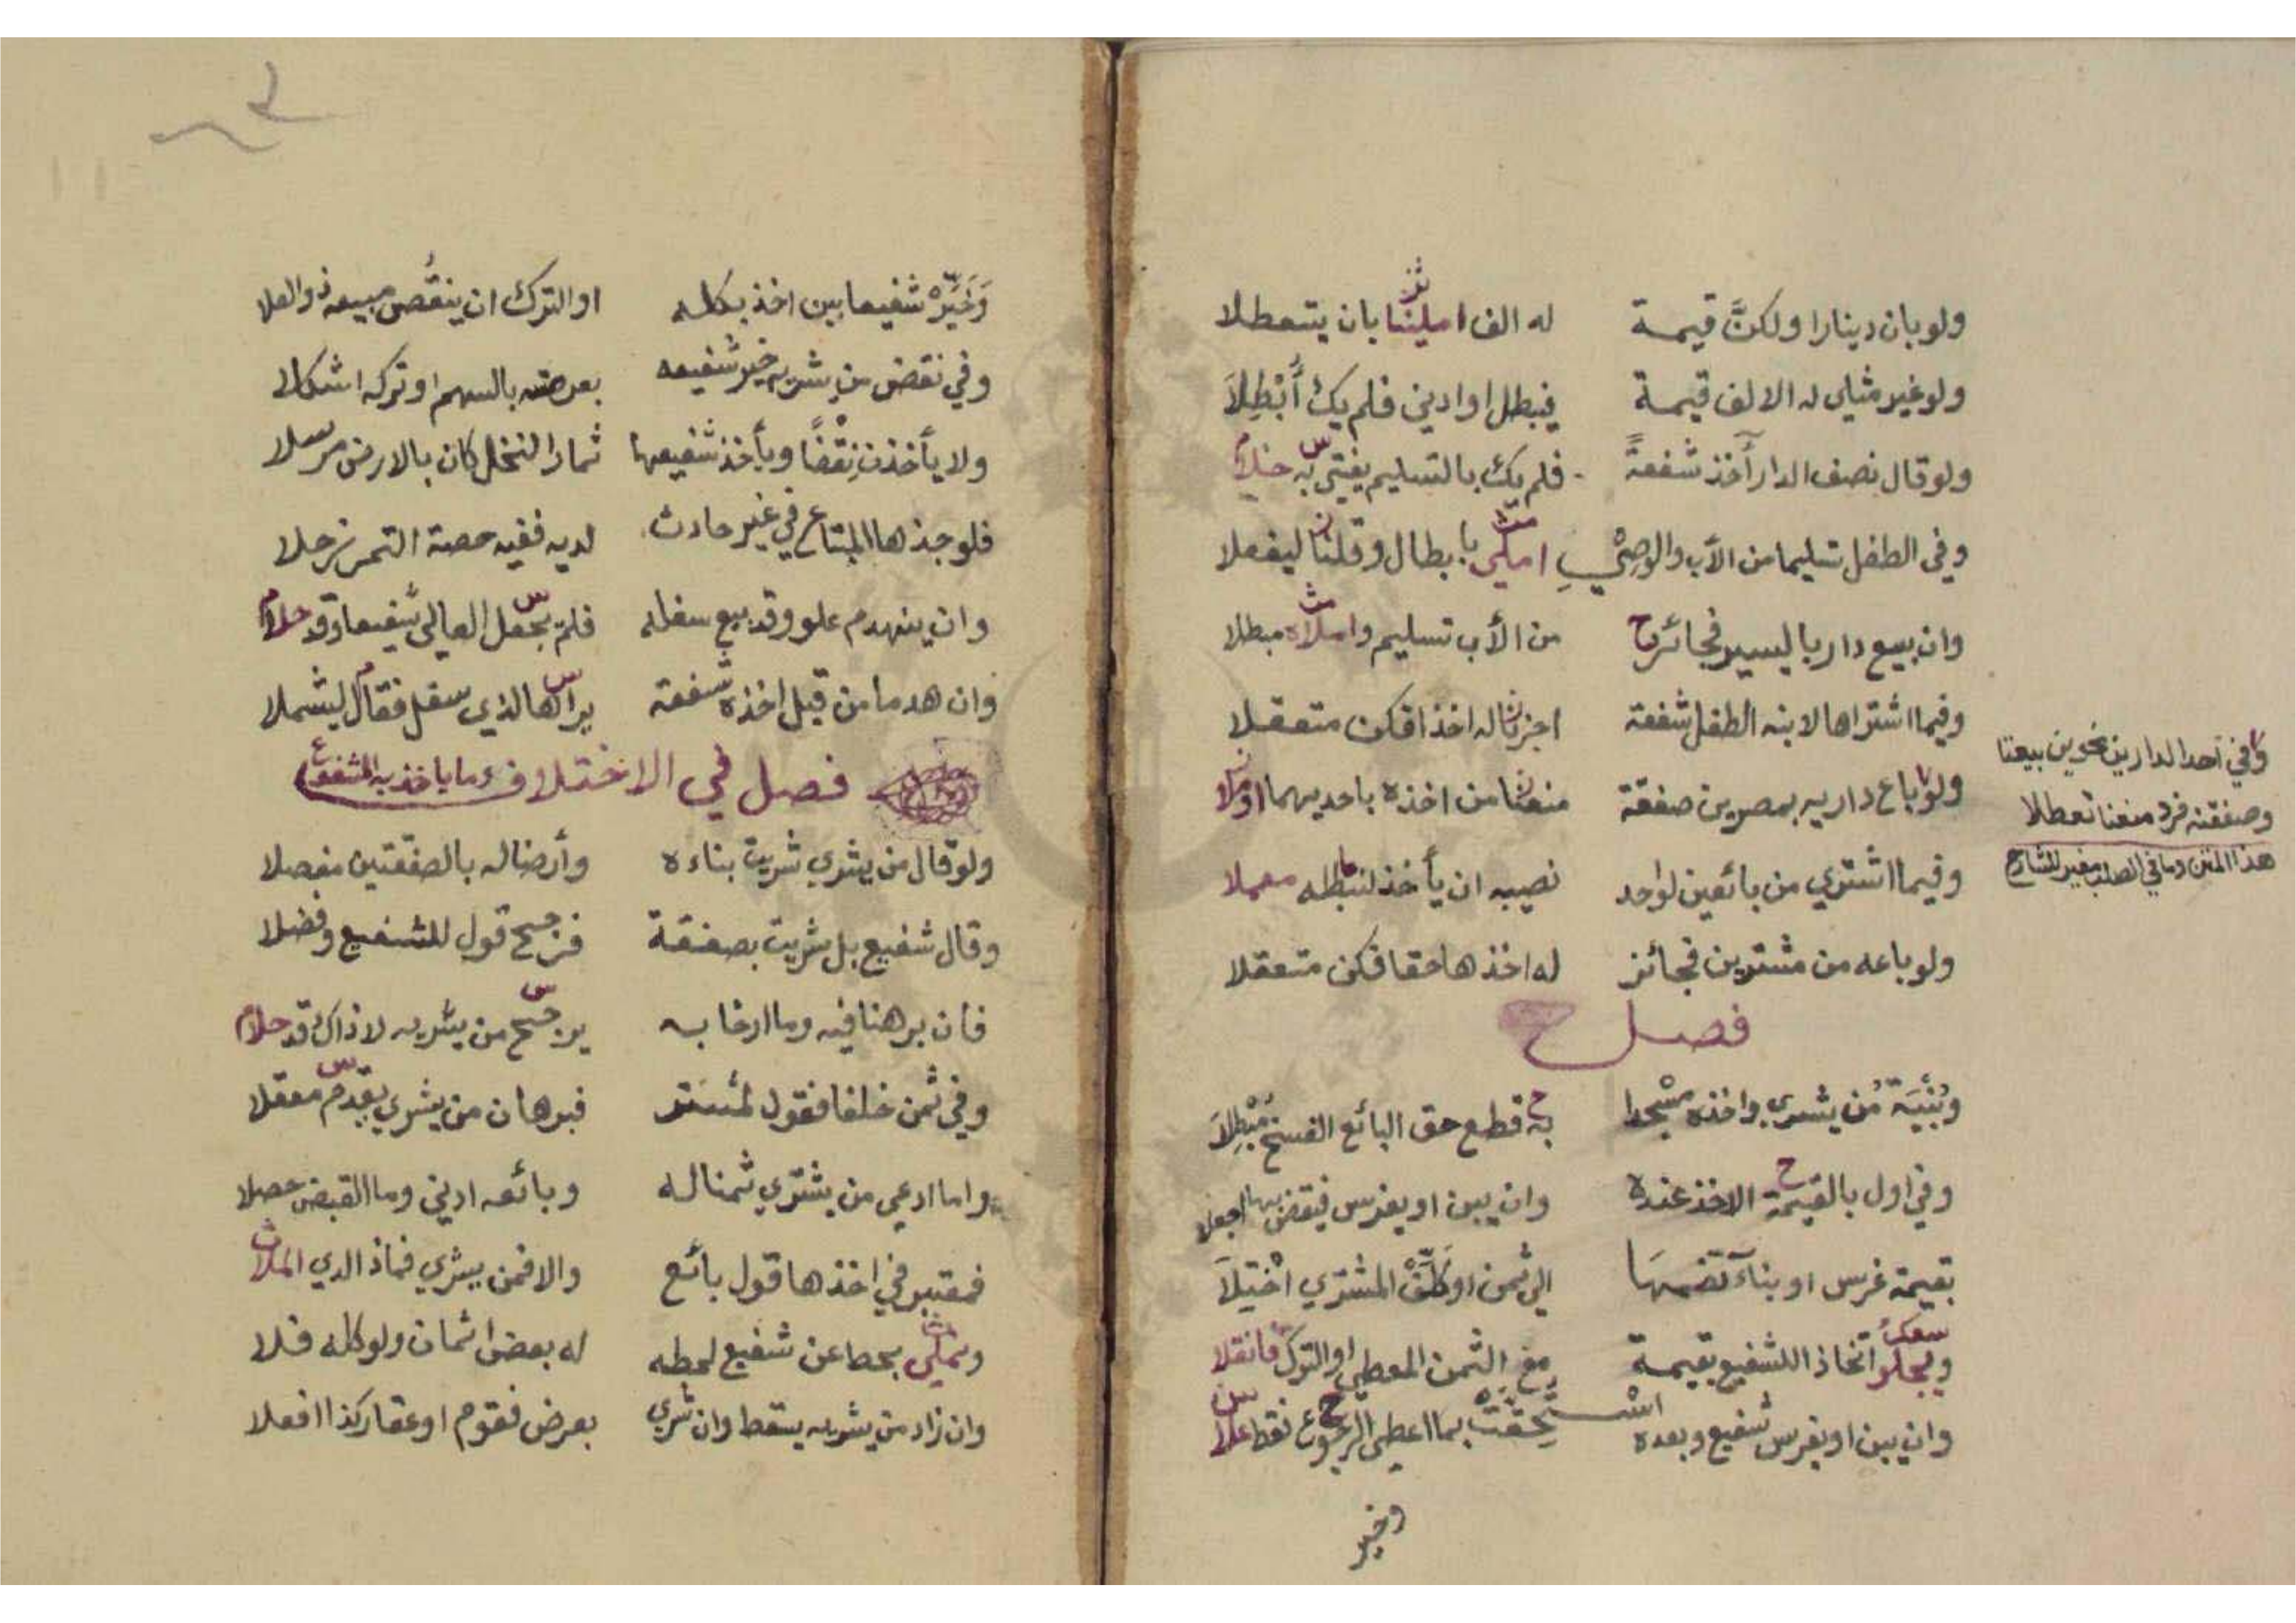 ولو بان دينارا ولكنَّ قيمة له الف املينا بان يتعطلا
ولو غير مثلي له الالف قيمة فيبطل او ادنى فلم يك أُبْطِلَا
ولو قال نصف الدار آخذ شفعةً فلم يك بالتسليم يفتى به
وفي الطفل تسليما من الأب والوصيِّ املى بابطال وقلنا ليفعلا
وان بيع دار باليسير فجائز من الأب تسليم واملاه مبطلا
وفيما اشتراها لابنه الطفل شفعة اجزنا له اخذا فكن متعقلا
ولو باع داريه بمصرين صفقة منعنا من اخذه باحديهما
وفيما اشترى من بائعين لواحد نصيبه ان يأخذ معملا
ولو باعه من مشترين فجائز له اخذها حقا فكن متعقلا
وفي احد الدارين بيعتا
وصفقته فرد منعنا تعطلا
هذا المتن وما في الصلب مغير للشارح
فصل
وبُنْيَة من يشري واخذه مسجدا به قطع حق البائع الفسخ مُبْطِلَا
وفي اول بالقيمة الاخذ عنده وان يبن او يغرس فينقض بها اجعلا
بقيمة غرس او بناء تضمها الى ثمن او كَلِّفْ المشتري اخْتِلَا
اتخاذا للشفيع بقيمة مع الثمن المعطى او الترك فانقلا
وان يبن او يغرس شفيع وبعده استحقت بما اعطى الرجوع فقط علا
وخير
وَخَيِّرْه شفيعا بين اخذ بكله او الترك ان ينقص مبيعه ذو العلا
وفي نقض من يشريه خير شفيعه بعرصته بالسهم او تركه اشكلا
ولا يأخذن نِقْضًا ويأخذ شفيعها ثمار النخل كان بالارض مرسلا
فلو جذها المبتاع في غير حادث لديه ففيه حصة التمر
وان ينهدم علو وقد بيع سفله فلم يجعل العالي شفيعا وقد
وان هدما من قبل اخذه شفعة يراها لذي سفل فقال ليشملا
فصل في الاختلاف وما ياخذ به المشفوع
ولو قال من يشري شريت بناءه وأرضا له بالصفقتين مفصلا
وقال شفيع بل شريت بصفقة فرجح قول للشفيع وفضلا
فان برهنا فيه وما ارخا به يرجح من يشريه لا ذاك قد
وفي ثمن خلفا فقول لمشتر فبرهان من يشري يقدم معقلا
واما ادعى من يشتري ثمنا له وبائعه ادنى وما القبض حصلا
فمعتبر في اخذها قول بائع والا فمن يشري فماذا لدي الملا
ويملى بحط عن شفيع لحطه له بعض اثمان ولو كله فلا
وان زاد من يشريه يسقط وان شري بعرض فقوم او عقار كذا افعلا